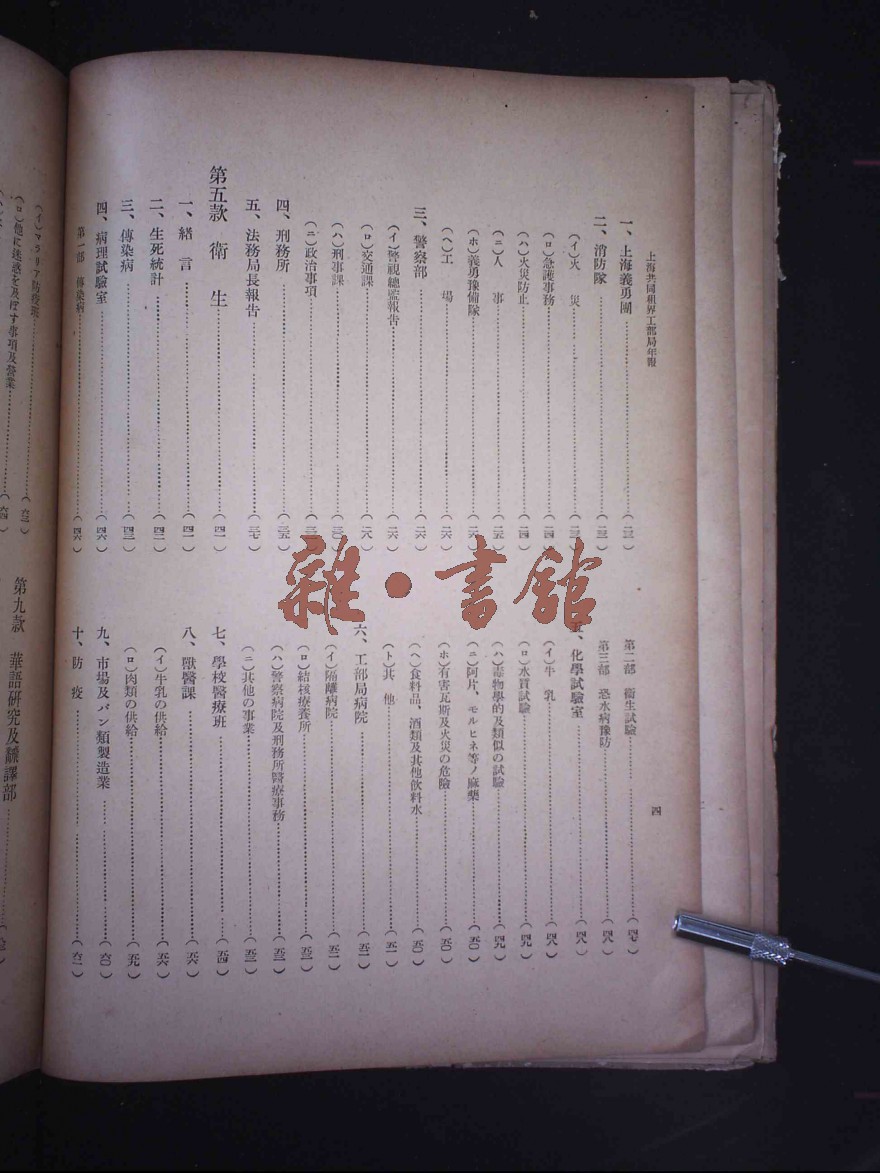 上海共同租界工部局年報
四
一、上海義勇團(二三)
二、消防隊(二三)
(イ)火災(二三)
(ロ)急護事務(二四)
(ハ)火災防止(二四)
(ニ)人事(二五)
(ホ)義勇豫備隊(二六)
(ヘ)工場(二六)
三、警察部(二六)
(イ)警視總監報告(二六)
(ロ)交通課(二八)
(ハ)刑事課(三〇)
(ニ)政治事項
四、刑務所(三五)
五、法務局長報告(三七)
第五款 衛生(四一)
一、緒言(四一)
二、生死統計(四二)
三、傳染病(四三)
四、病理試驗室(四六)
第一部 傳染病(四六)
第二部 衞生試驗(四七)
第三部 恐水病豫防(四八)
五、化學試驗室(四八)
(イ)牛乳(四八)
(ロ)水質試驗(四九)
(ハ)毒物學的及類似の試驗(四九)
(ニ)阿片、モルヒネ等ノ麻藥(五〇)
(ホ)有害瓦斯及火災の危險(五〇)
(ヘ)食料品、酒類及其他飮料水(五〇)
(ト)其他(五一)
六、工部局病院(五一)
(イ)隔離病院(五一)
(ロ)結核療養所(五二)
(ハ)警察病院及刑務所醫療事務(五三)
(ニ)其他の事業(五三)
七、學校醫療班(五四)
八、獸醫課(五六)
(イ)牛乳の供給(五六)
(ロ)肉類の供給(五九)
九、市場及パン類製造業(六〇)
十、防疫(六一)
(イ)マラリア防疫班(六二)
(ロ)他に迷惑を及ぼす事項及營業(六四)
第九款 華語硏究及飜譯部
雜·書館